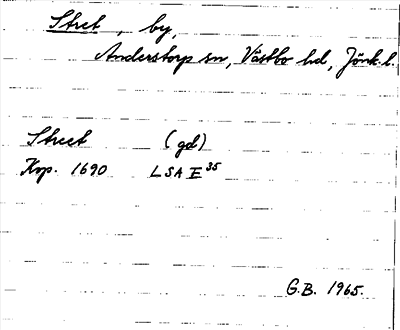 Stret, by,
Anderstorp sn, Västbo hd, Jönk. l.
Street (gd)
Kop. 1690 LSA E 35
G.B. 1965.